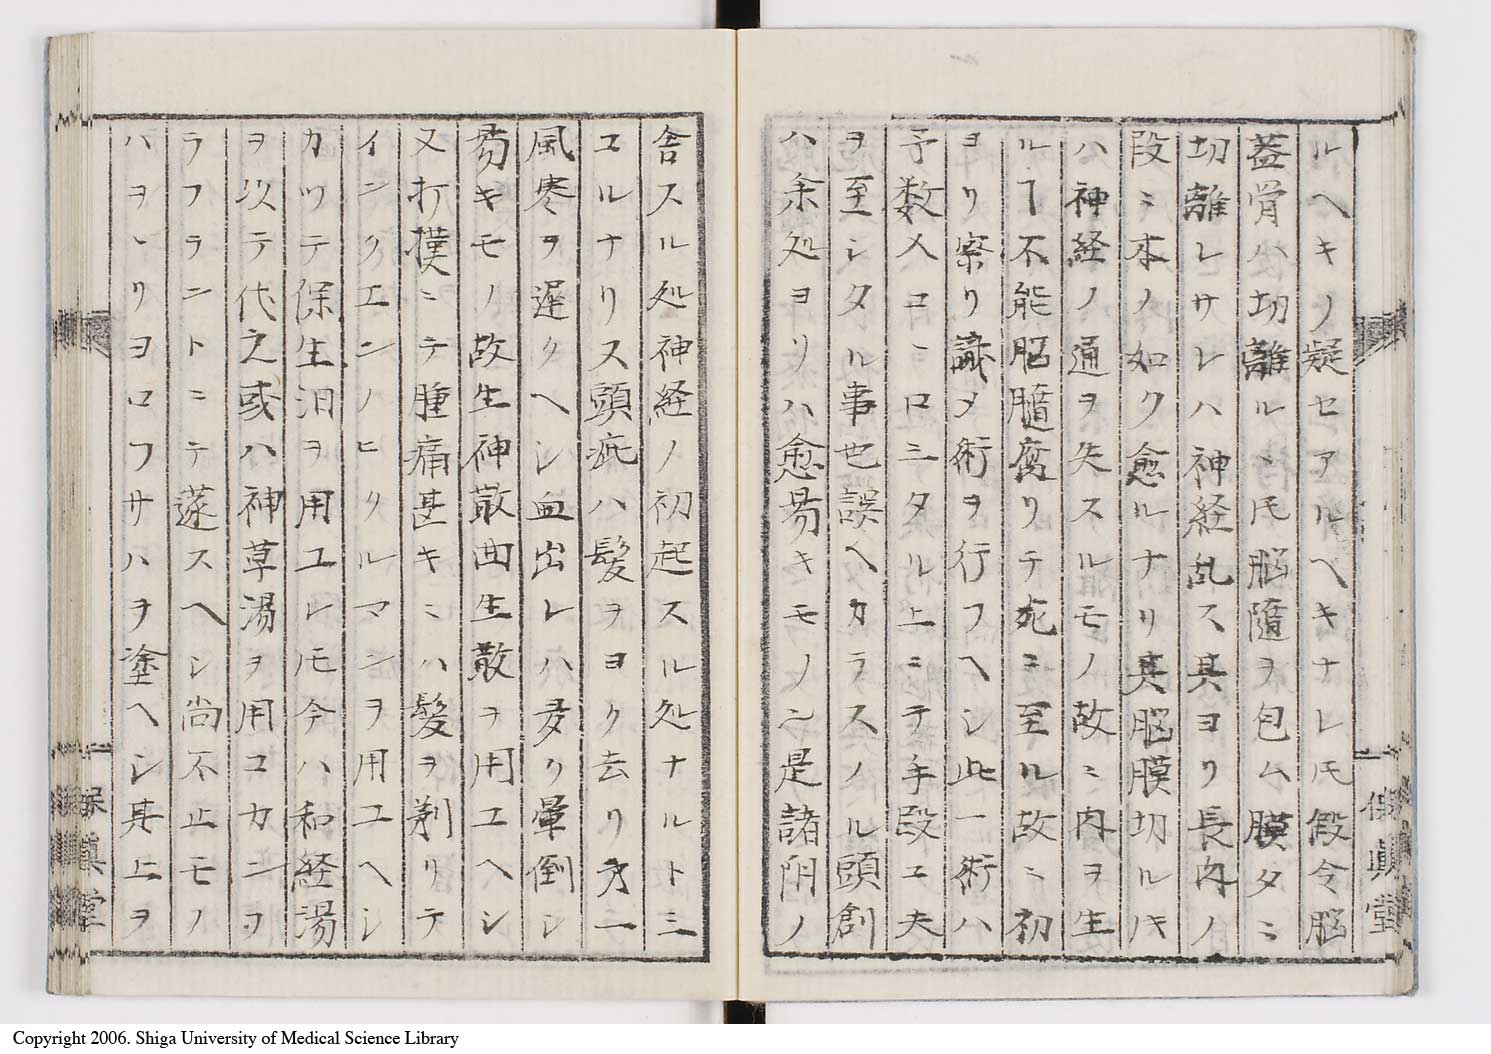 ルヘキノ疑セアルヘキナレ𪜈假令脳
蓋骨ハ切離ルヽ𪜈脳隨ヲ包ム膜タニ
切離レサレハ神経乱ス其ヨリ長内ノ
段ミ本ノ如ク愈ルナリ其脳膜切ルキ
ハ神経ノ通ヲ失スルモノ故ミ内ヲ生
ルヿ不能脳髄腐リテ死ニ至ル故ニ初
ヨリ察リ識メ術ヲ行フヘシ此一術ハ
予数人コヽロミタル上ニテ手段エ夫
ヲ至シタル事也誤ヘカラスノル頭創
ハ余処ヨリハ愈昜キモノ是諸陽ノ
舎スル処神経ノ初起スル処ナルト三
ユルナリス頭疵ハ髮ヲヨク去リ第一
風寒ヲ遅クヘシ血出レハ多ク暈倒シ
昜キモノ故生神散曲生散ヲ用ユヘシ
又打撲ニテ腫痛甚キニハ髪ヲ剃リテ
インクエンノヒクルマンヲ用ユヘシ
カツテ保生泪ヲ用ユレ𪜈今ハ和経湯
ヲ以テ代之或ハ神草湯ヲ用ユカニヲ
ラフラントニテ蓬スヘシ尚不止モノ
ハヲヽリヨロフサハヲ塗ヘシ其上ヲ
保眞堂